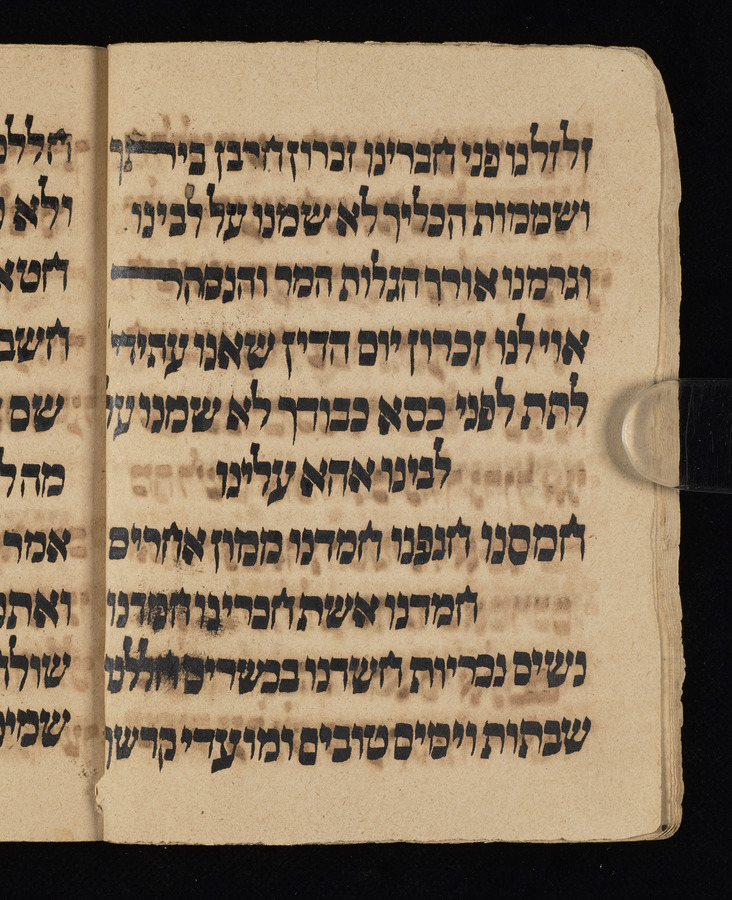 זלזלנו פני חברינו זכרון חרבן ביתך
ושממות הכליך לא שמנו על לבינו
וגרמנו אורך הגלות המר והנמהר
אוי לנו זכרון יום הדין שאנו עתידי
לתת לפני כסא כבודך לא שמנו על
לבינו אהא עלינו
חמסנו חנפנו חמדנו ממון אחרים
חמדנו אשת חברינו חמדנו
נשים נכריות חשדנו בכשרים חללנו
שבתות וימים טובים ומועדי קדשך
חללנ
ולא
חטא
חשב
שם
מהל
אמר
ואתם
שולח
שמים